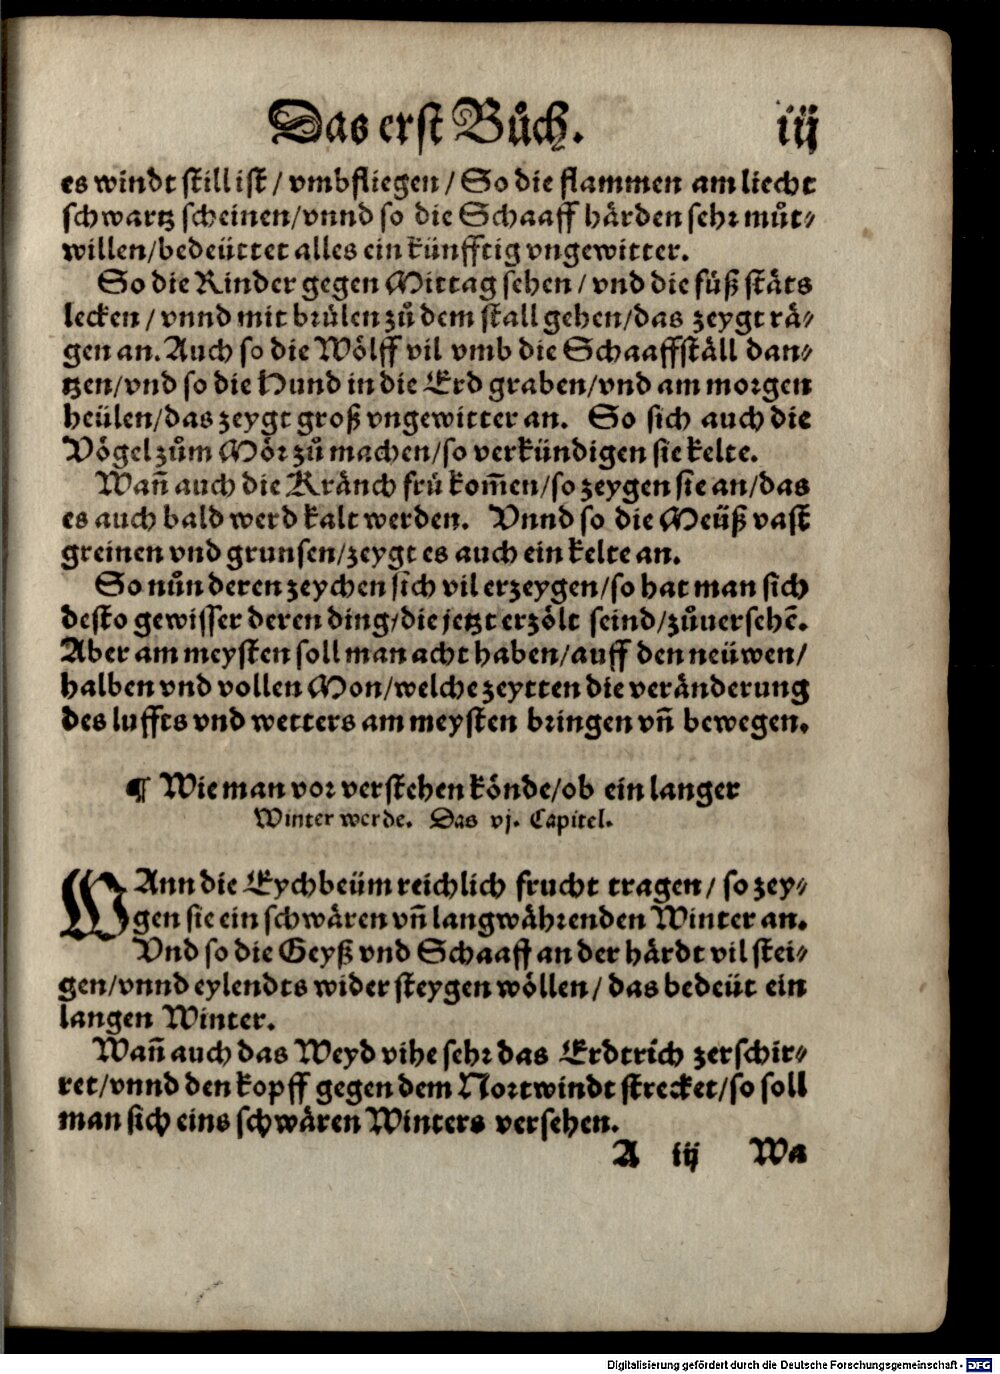 Das erst Bůch. iij
es windt still ist / vmbfliegen / So die flammen am liecht
schwartz scheinen/vnnd so die Schaaff härden sehr můt⸗
willen/bedeüttet alles ein künfftig vngewitter.
So die Rinder gegen Mittag sehen / vnd die füß stäts
lecken / vnnd mit brülen zů dem stall gehen/das zeygt rä⸗
gen an. Auch so die Wölff vil vmb die Schaaffställ dan⸗
tzen/vnd so die Hund in die Erd graben/vnd am morgen
heülen/das zeygt groß vngewitter an. So sich auch die
Vögel zům Mör zů machen/so verkündigen sie kelte.
Wañ auch die Kränch frü kom̄en/so zeygen sie an/das
es auch bald werd kalt werden. Vnnd so die Meüß vast
greinen vnd grunsen/zeygt es auch ein kelte an.
So nůn deren zeychen sich vil erzeygen/so hat man sich
desto gewisser deren ding/die jetzt erzölt seind/zůuersehẽ.
Aber am meysten soll man acht haben/auff den neüwen/
halben vnd vollen Mon/welche zeytten die veränderung
des luffts vnd wetters am meysten bringen vñ bewegen.
¶ Wie man vor verstehen könde/ob ein langer
Winter werde. Das vj. Capitel.
WAnn die Eychbeüm reichlich frucht tragen / so zey⸗
gen sie ein schwären vñ langwährenden Winter an.
Vnd so die Geyß vnd Schaaff an der härdt vil stei⸗
gen/vnnd eylendts wider steygen wöllen / das bedeüt ein
langen Winter.
Wañ auch das Weyd vihe sehr das Erdtrich zerschir⸗
ret/vnnd den kopff gegen dem Nortwindt strecket/so soll
man sich eins schwären Winters versehen.
A iij Wa
Digitalisierung gefördert durch die Deutsche Forschungsgemeinschaft - DFG